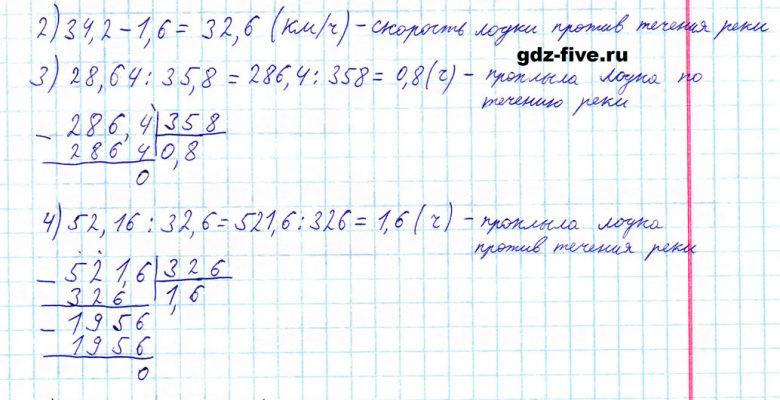 2) 34,2 – 1,6 = 32,6 (км/ч) – скорость лодки против течения реки
gdz-five.ru
3) 28,64 : 35,8 = 286,4 : 358 = 0,8 (ч) – проплыла лодка по
течению реки
– 286,4 | 358
2864 | 0,8
0
4) 52,16 : 32,6 = 521,6 : 326 = 1,6 (ч) – проплыла лодка
против течения реки
– 521,6 | 326
326 | 1,6
– 1956
1956
0